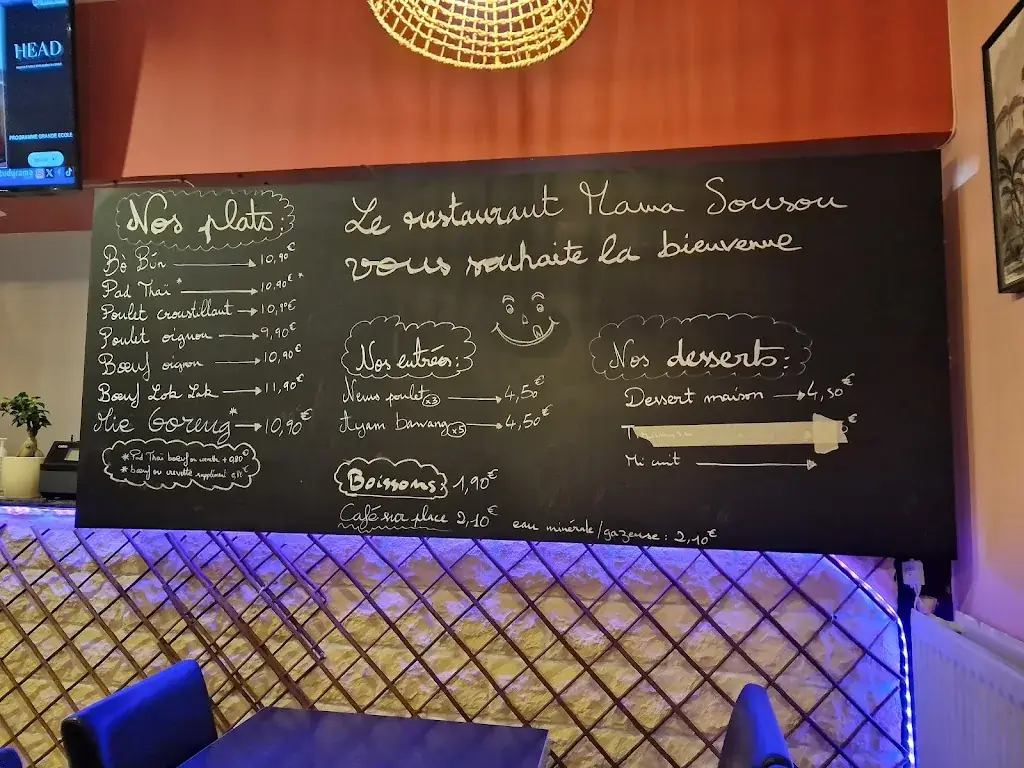 HEAD
PROGRAMME GRANDE ECOLE
Le restaurant Mama Sousou
vous souhaite la bienvenue
Nos plats:
Bò Bún → 10,90€
Pad Thaï* → 10,90€*
Poulet croustillant → 10,90€
Poulet oignon → 9,90€
Boeuf oignon → 10,90€
Boeuf Lok Lak → 11,90€
Mie Goreng* → 10,90€
* Pad Thaï boeuf ou crevette + 0,80€
* boeuf ou crevette supplément
Nos entrées:
Nems poulet x3 → 4,50€
Ayam bawang x5 → 4,50€
Boissons: 1,90€
Café sur place 2,10€
eau minérale/gazeuse: 2,10€
Nos desserts:
Dessert maison → 4,50€
€
Mi cuit →